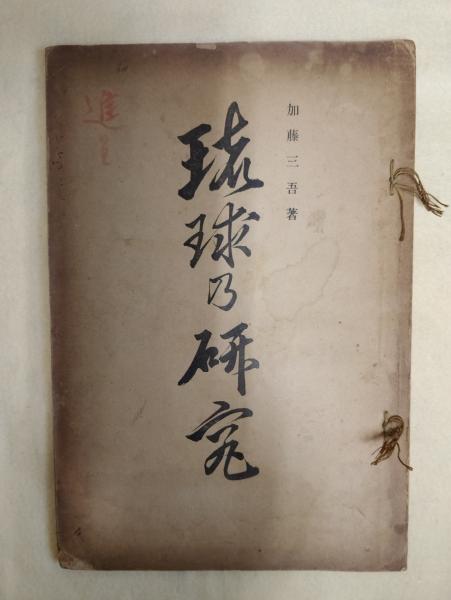 加藤三吾著
琉球乃研究
進呈